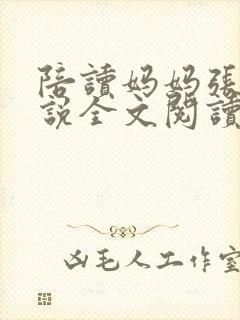 陪讀妈妈張
說全文閱讀
凶毛人工作室